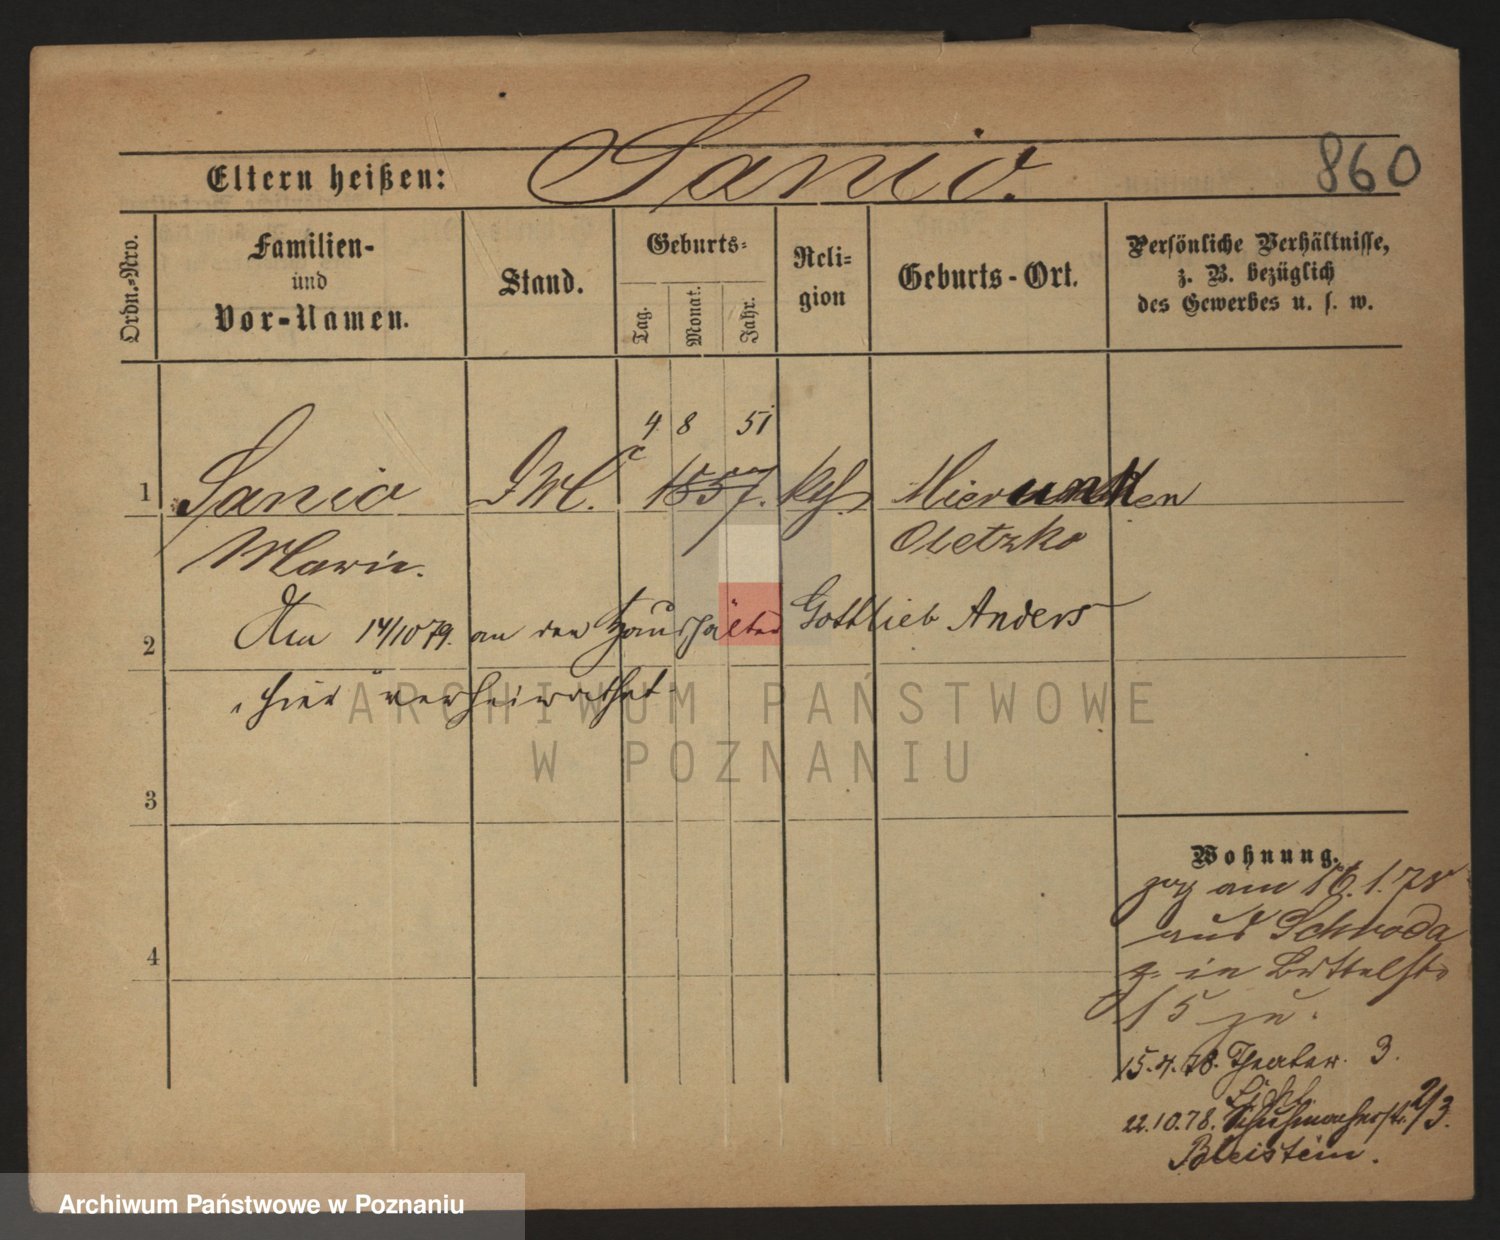 Eltern heißen: Sanio. 860
Ordn.-Nro.
Familien-
und
Vor-Namen.
Stand.
Geburts-
Tag.
Monat.
Jahr.
Reli-
gion
Geburts-Ort.
Persönliche Verhältnisse,
z. B. bezüglich
des Gewerbes u. s. w.
4 8 51
1 Sanio 1857. Mierunsken
Marie. Oletzko
Am 14/10 79. an den Haushälter Gottlieb Anders
2
hier verheirathet.
3
4
Wohnung.
zog am 16.1.78
aus Schroda
in Büttelstr
15 zu.
15.4.78. Theater. 3.
22.10.78. Schuhmacherstr. 2/3.
Bleistein.
ARCHIWUM PAŃSTWOWE
W POZNANIU
Archiwum Państwowe w Poznaniu